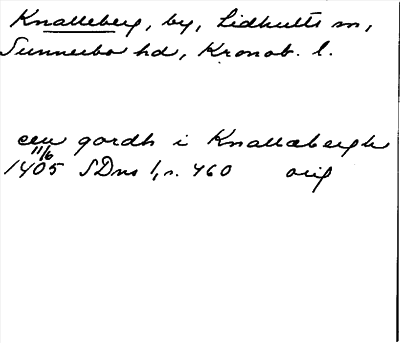 Knalleberg, by, Lidhults sn,
Sunnerbo hd, Kronob. l.
een gordh i Knallæbergh
11/6
1405 SDns 1, s. 460 orig